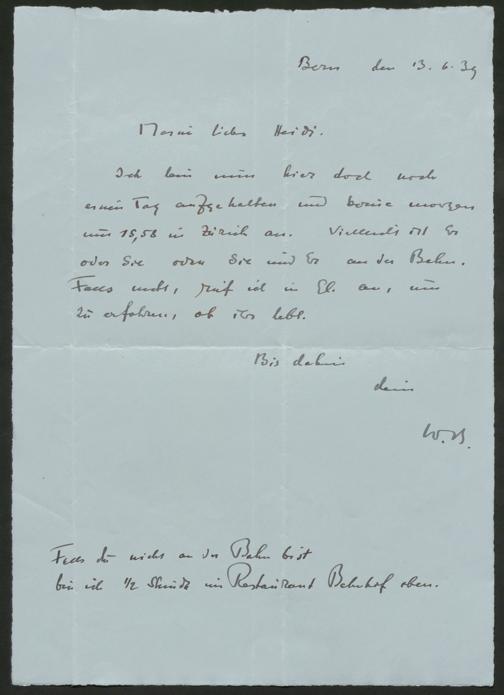 Bern den 13. 6. 39
Meine liebe Heidi.
Ich bin nun hier doch noch
einen Tag aufgehalten und komme morgen
um 15,58 in Zürich an. Vielleicht ist Er
oder Sie oder Sie und Er an der Bahn.
Falls nicht, ruf ich in El. an, um
zu erfahren, ob ihr lebt.
Bis dahin
dein
W.
Falls du nicht an der Bahn bist
bin ich 1/2 Stunde im Restaurant Bahnhof oben.